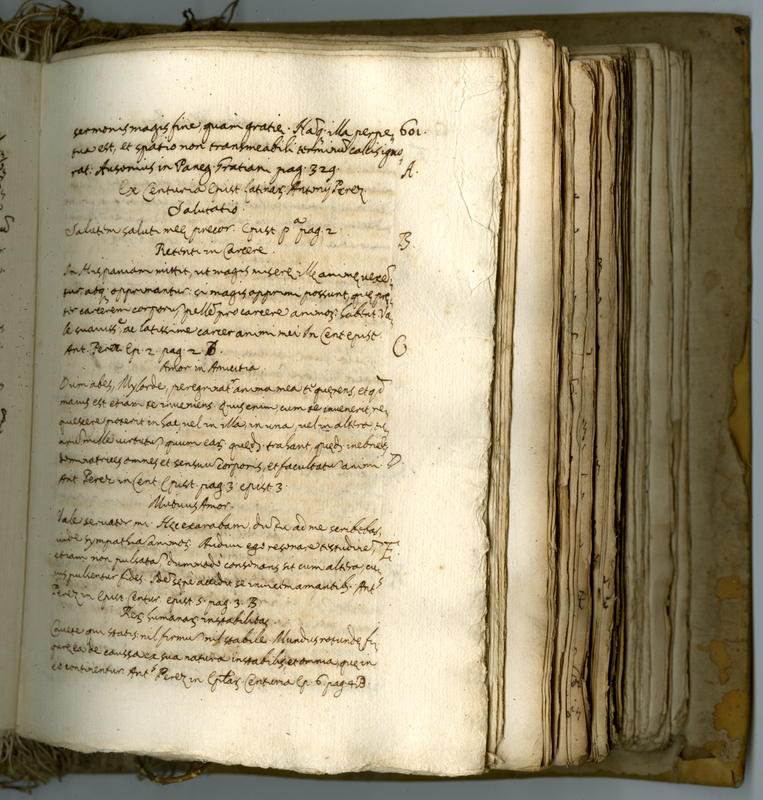 sermonis magis fine, quam gratię. Hāq illa perpe, 601.
tua est, et spatio non transmeabili terminū callis igno
rat. Ausonius in Paneg. Gratiani pag. 329. A.
Ex Centuria Epist. latinar. Antonij Perez
Salutatio.
Salutem saluti męę precor. Epist pª pag. 2. B.
Retenti in Carcere.
In Hispaniam mittit, ut magis miserę illę animę vexē,
tur, atq opprimantur: si magis opprimi possunt, quę prę,
ter carcerem corporis pellē pro carcere animos habent. Va
le suaviss. ac latissime carcer animi mei. In Cent epist. C
Ant. Perez Ep. 2. pag. 2 B.
Amor in Amicitia.
Dum abes, Mylorde, peregrinatʳ anima mea te querens, et qd
maius est etiam se inveniens. Quis enim, cum se invenerit re,
quiescere poterit in hac, vel in illa, in una, vel in altera tu
arū mille virtutū quum eas quęq trahant, quęq inebriēt,
dominatrices omnes et sensuū corporis, et facultatū animi D.
Ant Perez in Cent Epist. pag. 3 epist 3.
Mutuus Amor.
Vale servater mi. Hęc exarabam, dū tu ad me scribebas,
vide sympathiā animos. Audivi ego resonare testudinē, E.
etiam non pulsatā dummodo consonans sit cum altera, cu,
ius pulsentur fides. Sępe accidit se invicem amantibq. Antˢ
Perez in Epist Centur. epist 5. pag. 3. B
Rerū humanarū instabilitas.
Cavete qui statis nil firmū nil stabile. Mundus rotundę fi,
gurę ea de caussa ex sua natura instabilis et omnia, quę in
eo continentur. Antˢ Perez in Eplar. Centuria Ep. 6. pag. 4 B